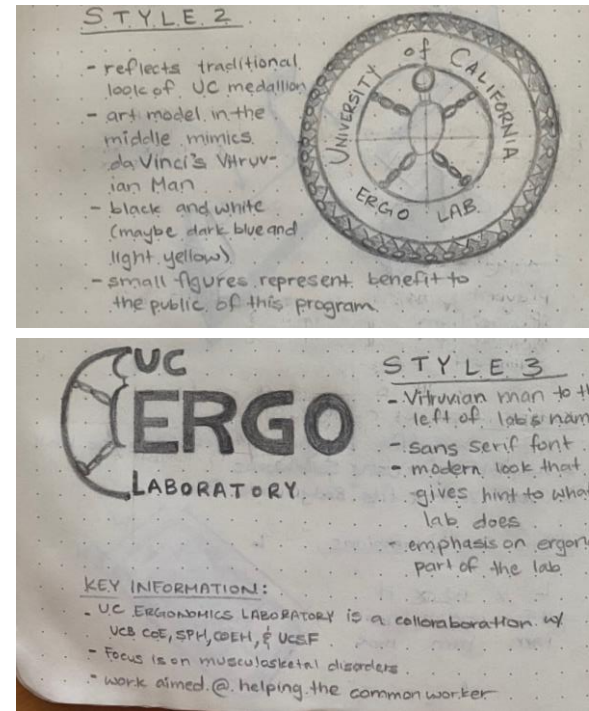 STYLE 2
- reflects traditional
look of UC medallion
- art model in the
middle mimics
da Vinci's Vitruv-
ian Man
- black and white
(maybe dark blue and
light yellow)
- small figures represent benefit to
the public of this program.
UNIVERSITY of CALIFORNIA
ERGO LAB
UC
ERGO
LABORATORY
STYLE 3
- Vitruvian man to th
left of lab's nam
- sans serif font
- modern look that
gives hint to wha
lab does
- emphasis on ergon
part of the lab
KEY INFORMATION:
- UC ERGONOMICS LABORATORY is a collaboration w/
UCB COE, SPH, COEH, & UCSF
- Focus is on musculasketal disorders
- work aimed @ helping the common worker